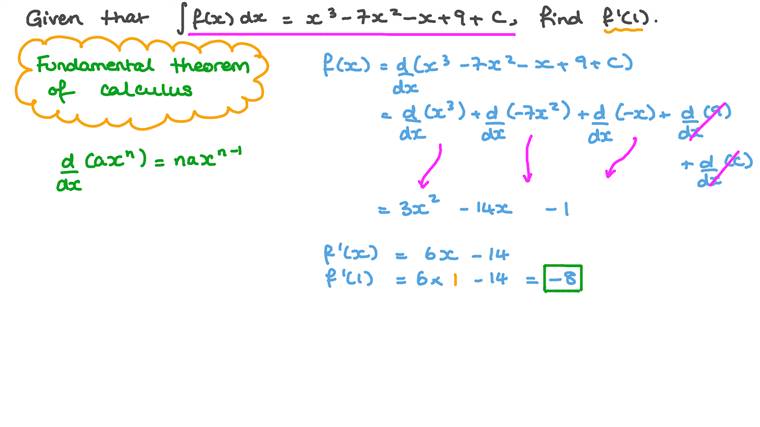 Given that ∫f(x) dx = x³ - 7x² - x + 9 + C, find f'(1).
Fundamental theorem
of calculus
d/dx (axⁿ) = naxⁿ⁻¹
f(x) = d/dx (x³ - 7x² - x + 9 + C)
= d/dx (x³) + d/dx (-7x²) + d/dx (-x) + d/dx (9)
+ d/dx (C)
= 3x² - 14x - 1
f'(x) = 6x - 14
f'(1) = 6 × 1 - 14 = -8